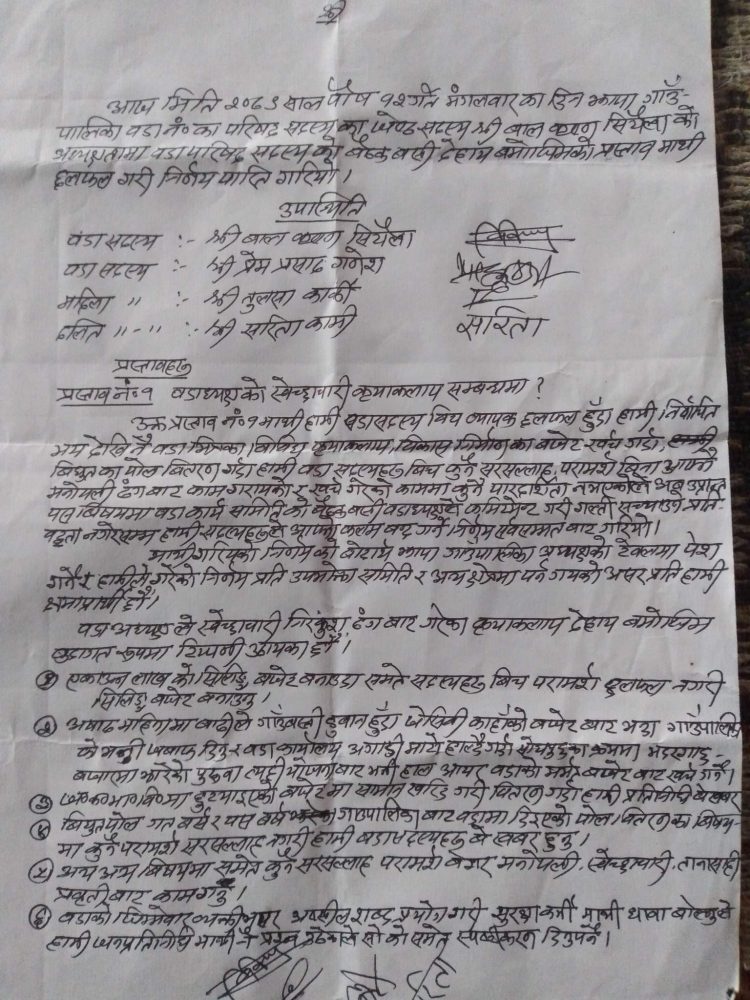 आज मिति २०७५ साल पौष १२ गते मंगलवार का दिन झापा गाउँ-
पालिका वडा नं० का परिषद सदस्य का जेष्ठ सदस्य श्री बाल कृष्ण सिटौला को
अध्यक्षतामा वडा परिषद सदस्य को बैठक बसी देहाय बमोजिमको प्रस्ताव माथी
छलफल गरी निर्णय पारित गरियो।
उपस्थिति
वडा सदस्य :- श्री बाल कृष्ण सिटौला
वडा सदस्य :- श्री प्रेम प्रसाद गनेश
महिला " :- श्री तुलसा कार्की
दलित " - " :- श्री सरिता कामी सरिता
प्रस्तावहरु
प्रस्ताव नं० १ वडाध्यक्षको स्वेच्छाचारी कृयाकलाप सम्बन्धमा ?
उक्त प्रस्ताव नं० १ माथी हामी वडा सदस्य विच व्यापक छलफल हुँदा हामी निर्वाचित
भए देखि नै वडा भित्रका विविध कृयाकलाप, विकास निर्माण का बजेट खर्च गर्दा,
विद्युत का पोल वितरण गर्दा हामी वडा सदस्यहरु बिच कुनै सरसल्लाह, परामर्श बिना आफ्नै
मनोमानी ढंग बाट काम गराएको र खर्च गरेको काममा कुनै पारदर्शिता नभएकोले अब उप्रान्त
यस बिषयमा वडा कार्य समिति को बैठक बसी वडाध्यक्षले कमिटमेन्ट गरी गल्ती सच्याउने प्रति-
वद्धता नगरेसम्म हामी सदस्यहरुले आफ्नो कलम बन्द गर्ने निर्णय सर्वसम्मत बाट गरियो।
माथी गरिएको निर्णय को बोधार्थ झापा गाउँपालिका अध्यक्षको टेवलमा पेश
गर्ने र हामीले गरेको निर्णय प्रति उपभोक्ता समिति र अन्य क्षेत्रमा पर्न गएको असर प्रति हामी
क्षमाप्रार्थी छौं।
वडा अध्यक्ष ले स्वेच्छाचारी निरंकुश ढंग बाट गरेका कृयाकलाप देहाय बमोजिम
बुंदागत रूपमा टिप्पणी उठाएका छौं।
① एकाउन्न लाख को सिलिङ्ग बजेट बनाउदा समेत सदस्यहरु बिच परामर्श छलफल नगरी
सिलिङ्ग बजेट बनाउनु।
② अषाढ महिनामा बाढीले गाउँबस्ती डुवान हुँदा कहाँको बजेट बाट भन्दा गाउँपालिका
के भन्ने जवाफ दिनु र वडा कार्यालय अगाडी माटो हाल्दै गर्दा सोधपुछका क्रममा भद्रगाउ-
बजारमा झरेको पुछुवा त्यही योजना बाट भनी हाल आएर वडाको मर्मत बजेट बाट खर्च गर्ने।
③ बजेटमा सामान खरिद गरी वितरण गर्दा हामी प्रतिनिधी बेखवर
④ विद्युतपोल गत वर्ष र यस वर्ष गाउँपालिका बाट वडामा दिइएको पोल वितरण का बिषय-
मा कुनै परामर्श सरसल्लाह नगरी हामी वडा सदस्यहरु बेखवर हुनु।
⑤ अन्य आय बिषयमा समेत कुनै सरसल्लाह परामर्श बेगर मनोमानी, स्वेच्छाचारी, तानासाही
प्रवृती बाट काम गर्नु।
⑥ वडाको जिम्मेवार व्यक्ती भएर अश्लील शब्द प्रयोग गरी सुरक्षा कर्मी माथी धावा बोल्नुले
हामी जनप्रतिनिधि माथी नै प्रश्न उठेकाले सो को समेत स्पष्टीकरण दिनुपर्ने।